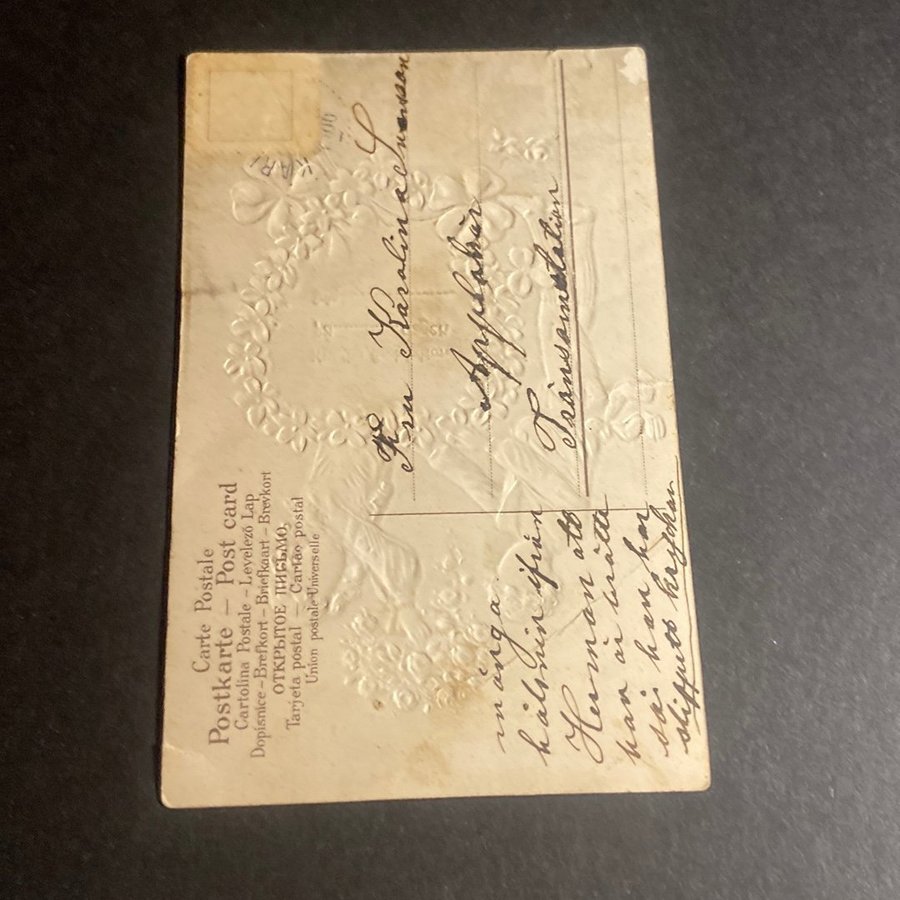 Carte Postale
Postkarte — Post card
Cartolina Postale – Levelező Lap
Dopisnice – Brefkort – Briefkaart – Brevkort
ОТКРЫТОЕ ПИСЬМО.
Tarjeta postal — Cartão postal
Union postale Universelle
KARL
Fru Karolina Svensson
Applakär
Tranåsomstation
många
hälsnin ifrån
Herman att
han är
så han har